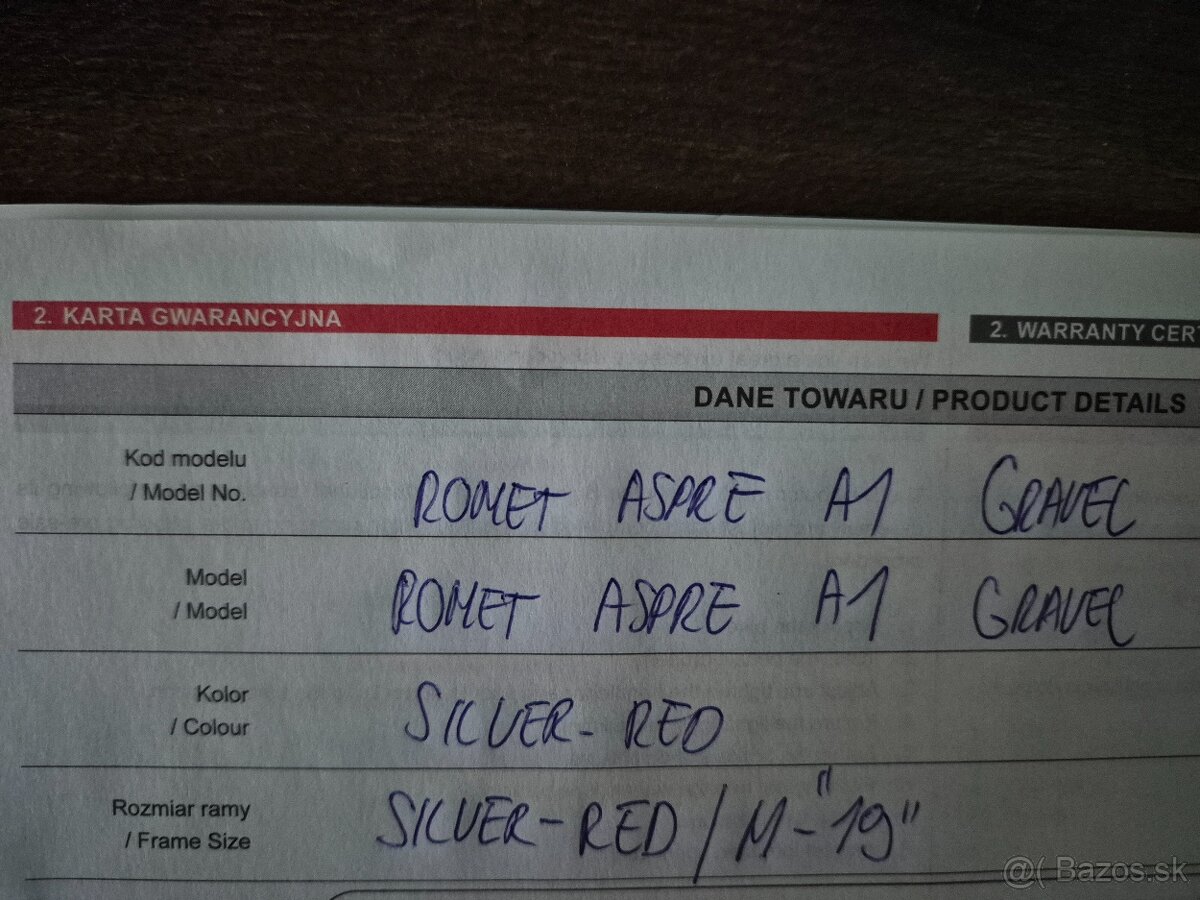 2. KARTA GWARANCYJNA
2. WARRANTY CER
DANE TOWARU / PRODUCT DETAILS
Kod modelu
/ Model No.
ROMET ASPRE A1 GRAVEL
Model
/ Model
ROMET ASPRE A1 GRAVEL
Kolor
/ Colour
SILVER-RED
Rozmiar ramy
/ Frame Size
SILVER-RED / M-"19"
@( Bazos.sk